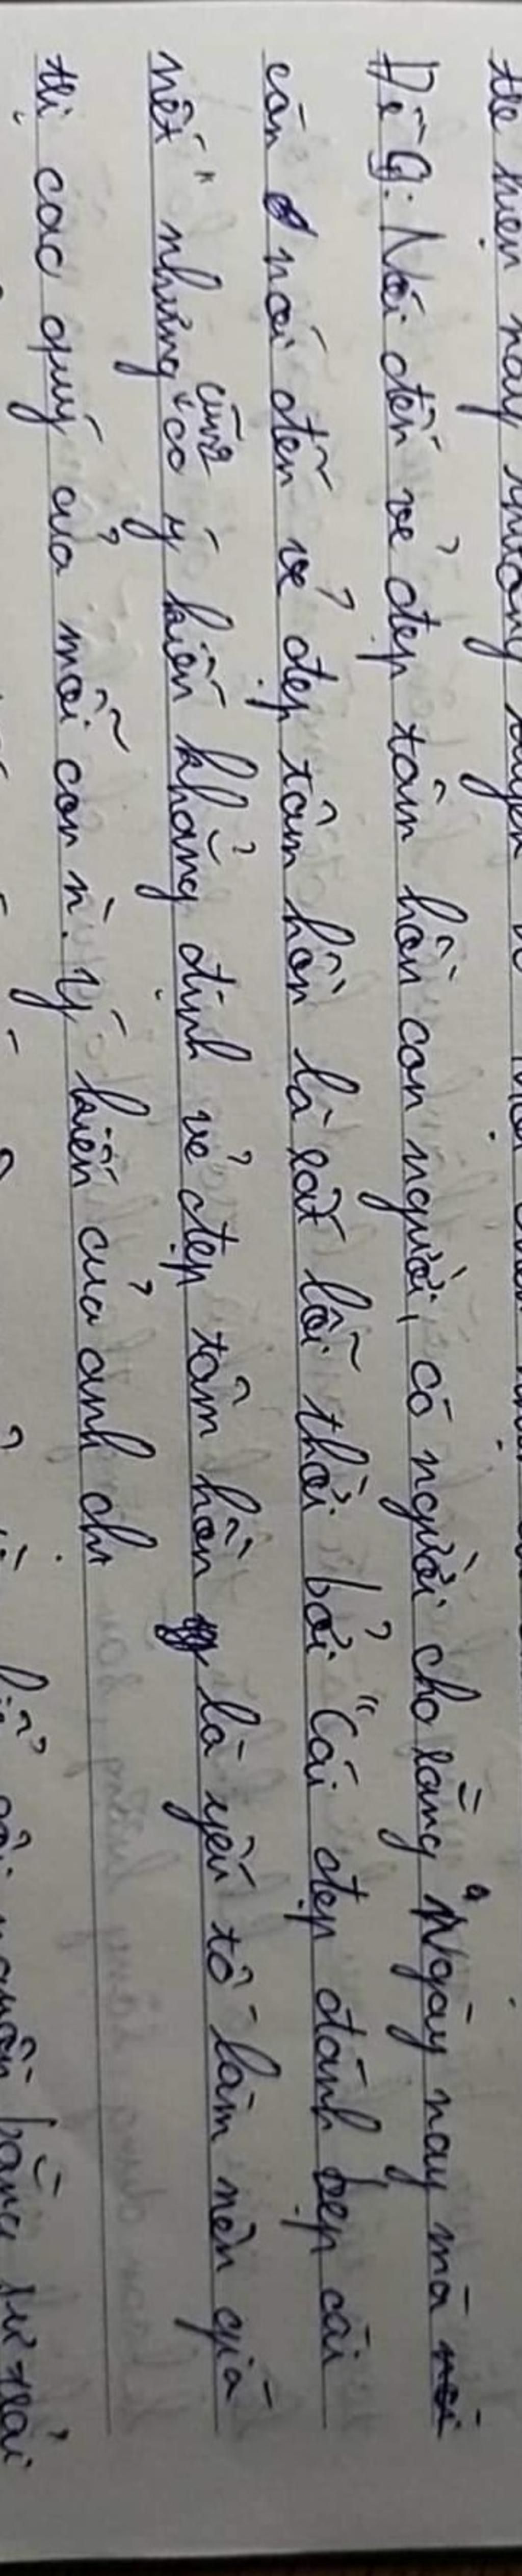 thể hiện
Đề 9: Nói đến vẻ đẹp tâm hồn con người, có người cho rằng "Ngày nay mà
còn nói đến vẻ đẹp tâm hồn là rất lỗi thời bởi "Cái đẹp đánh bẹp cái
nết" nhưng cũng có ý kiến khẳng định vẻ đẹp tâm hồn là yếu tố làm nên giá
thị cao quý của mỗi con n'. Ý kiến của anh chị